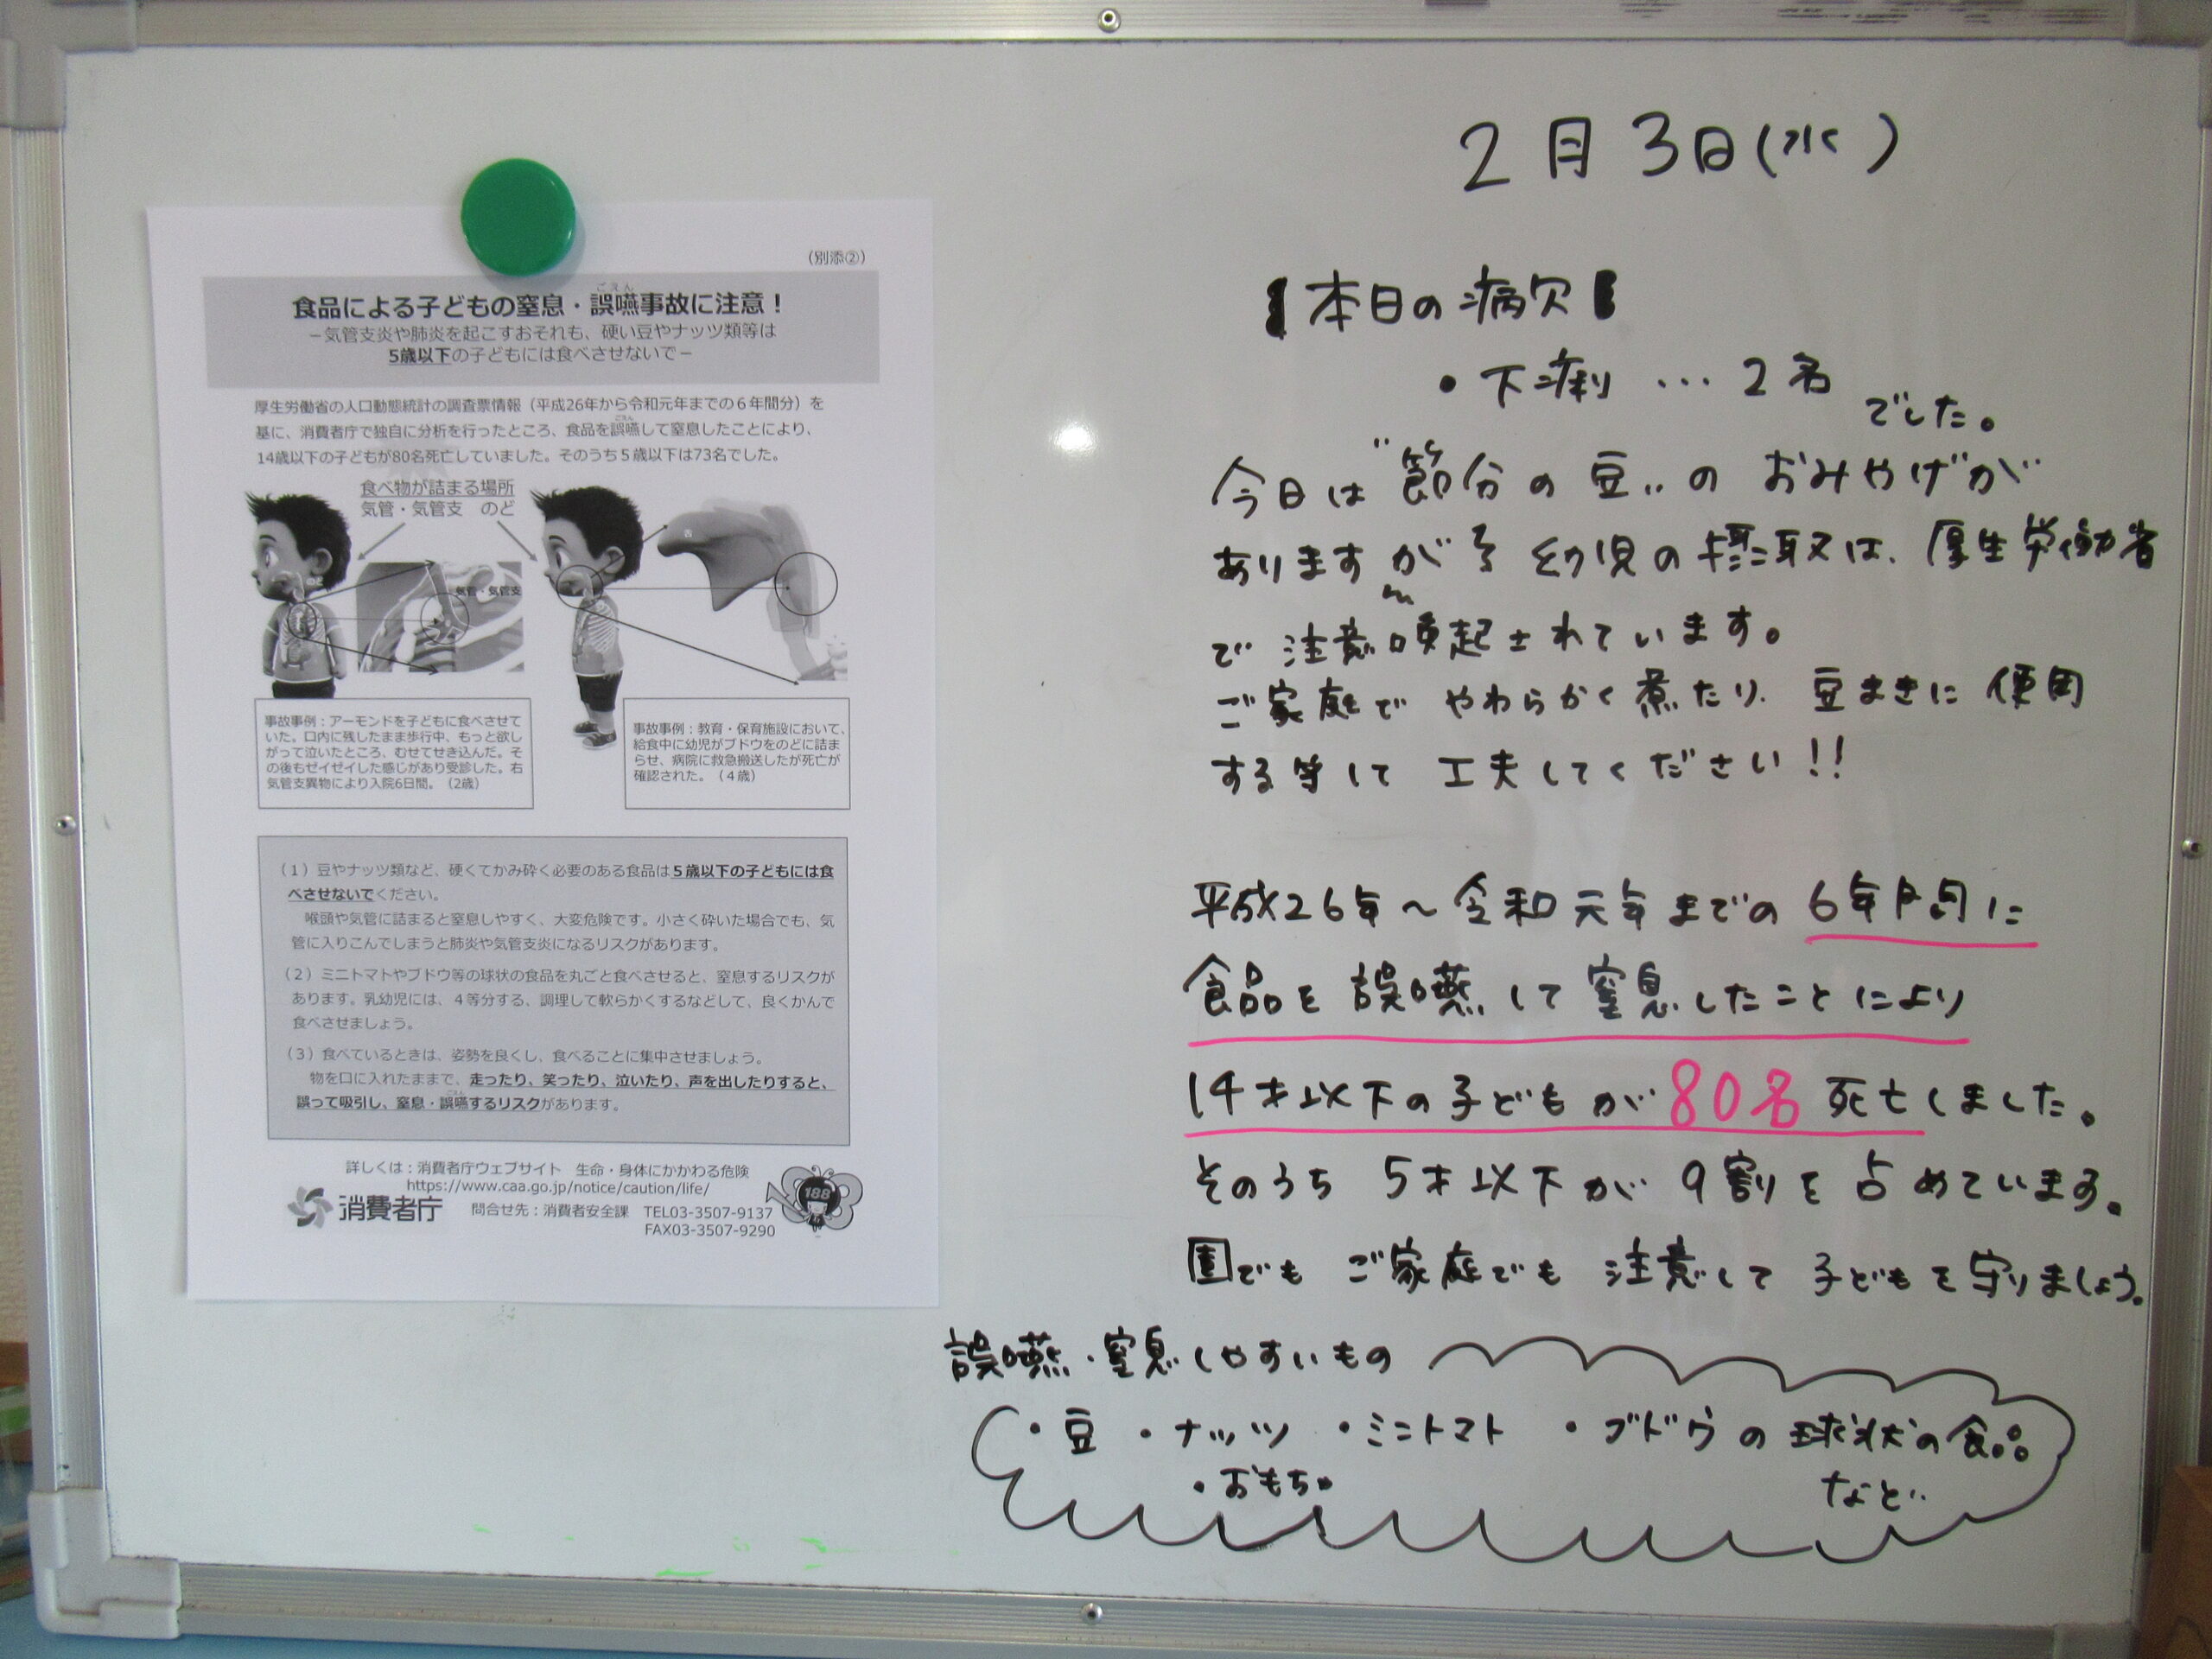 (別添②)
ごえん
食品による子どもの窒息・誤嚥事故に注意！
－気管支炎や肺炎を起こすおそれも、硬い豆やナッツ類等は
5歳以下の子どもには食べさせないで－
厚生労働省の人口動態統計の調査票情報（平成26年から令和元年までの６年間分）を
ごえん
基に、消費者庁で独自に分析を行ったところ、食品を誤嚥して窒息したことにより、
14歳以下の子どもが80名死亡していました。そのうち５歳以下は73名でした。
食べ物が詰まる場所
気管・気管支　のど
気管・気管支
事故事例：アーモンドを子どもに食べさせて
いた。口内に残したまま歩行中、もっと欲し
がって泣いたところ、むせてせき込んだ。そ
の後もゼイゼイした感じがあり受診した。右
気管支異物により入院6日間。（2歳）
事故事例：教育・保育施設において、
給食中に幼児がブドウをのどに詰ま
らせ、病院に救急搬送したが死亡が
確認された。（４歳）
（１）豆やナッツ類など、硬くてかみ砕く必要のある食品は５歳以下の子どもには食
べさせないでください。
喉頭や気管に詰まると窒息しやすく、大変危険です。小さく砕いた場合でも、気
管に入りこんでしまうと肺炎や気管支炎になるリスクがあります。
（２）ミニトマトやブドウ等の球状の食品を丸ごと食べさせると、窒息するリスクが
あります。乳幼児には、４等分する、調理して軟らかくするなどして、良くかんで
食べさせましょう。
（３）食べているときは、姿勢を良くし、食べることに集中させましょう。
物を口に入れたままで、走ったり、笑ったり、泣いたり、声を出したりすると、
ごえん
誤って吸引し、窒息・誤嚥するリスクがあります。
詳しくは：消費者庁ウェブサイト　生命・身体にかかわる危険
https://www.caa.go.jp/notice/caution/life/
消費者庁
問合せ先：消費者安全課　TEL03-3507-9137
FAX03-3507-9290
188
2月3日(水)
【本日の病欠】
・下痢 … 2名
でした。
今日は"節分の豆"のおみやげが
ありますが 幼児の摂取は、厚生労働省
で 注意喚起されています。
ご家庭で やわらかく煮たり、豆まきに 使用
する等して 工夫してください!!
平成26年～令和元年までの 6年間に
食品を誤嚥して窒息したことにより
14才以下の子どもが80名死亡しました。
そのうち 5才以下が 9割を占めています。
園でも ご家庭でも 注意して 子どもを守りましょう。
誤嚥・窒息しやすいもの
・豆 ・ナッツ ・ミニトマト ・ブドウの球状の食品
・おもちゃ
など‥